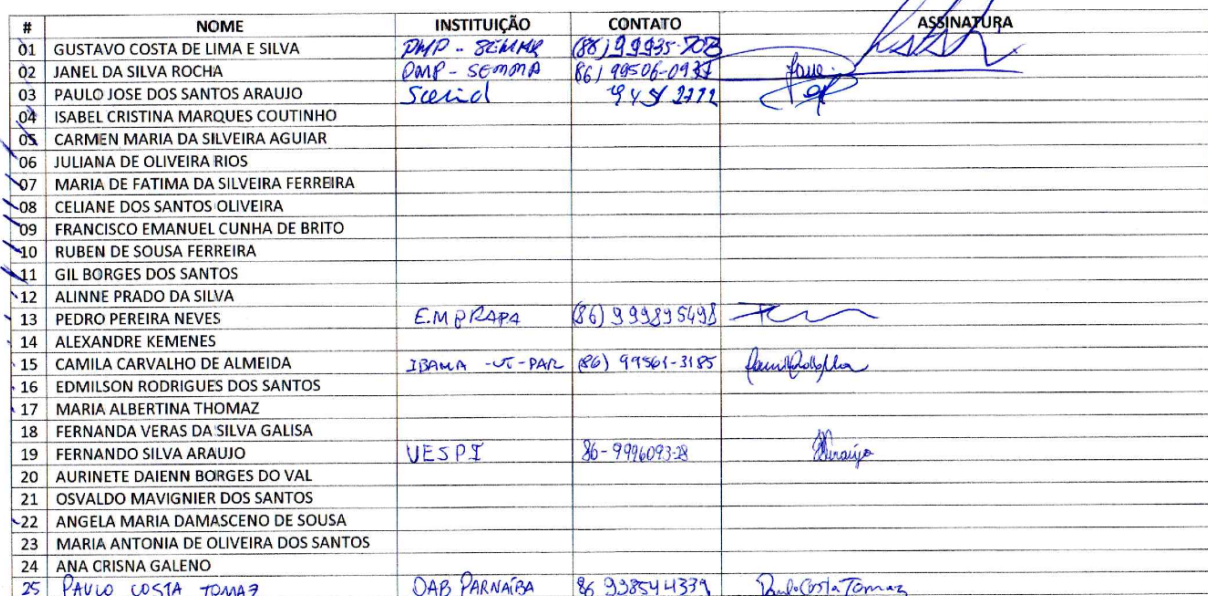 # NOME INSTITUIÇÃO CONTATO ASSINATURA
01 GUSTAVO COSTA DE LIMA E SILVA PMP - SEMMA
02 JANEL DA SILVA ROCHA PMP - SEMMA 86) 99506-0937
03 PAULO JOSE DOS SANTOS ARAUJO
04 ISABEL CRISTINA MARQUES COUTINHO
05 CARMEN MARIA DA SILVEIRA AGUIAR
06 JULIANA DE OLIVEIRA RIOS
07 MARIA DE FATIMA DA SILVEIRA FERREIRA
08 CELIANE DOS SANTOS OLIVEIRA
09 FRANCISCO EMANUEL CUNHA DE BRITO
10 RUBEN DE SOUSA FERREIRA
11 GIL BORGES DOS SANTOS
12 ALINNE PRADO DA SILVA
13 PEDRO PEREIRA NEVES EMBRAPA (86) 999895498
14 ALEXANDRE KEMENES
15 CAMILA CARVALHO DE ALMEIDA IBAMA -UT-PAR (86) 99561-3185
16 EDMILSON RODRIGUES DOS SANTOS
17 MARIA ALBERTINA THOMAZ
18 FERNANDA VERAS DA SILVA GALISA
19 FERNANDO SILVA ARAUJO UESPI 86-9996093-28
20 AURINETE DAIENN BORGES DO VAL
21 OSVALDO MAVIGNIER DOS SANTOS
22 ANGELA MARIA DAMASCENO DE SOUSA
23 MARIA ANTONIA DE OLIVEIRA DOS SANTOS
24 ANA CRISNA GALENO
25 PAULO COSTA TOMAZ OAB PARNAÍBA 86 998544339 Paulo Costa Tomaz